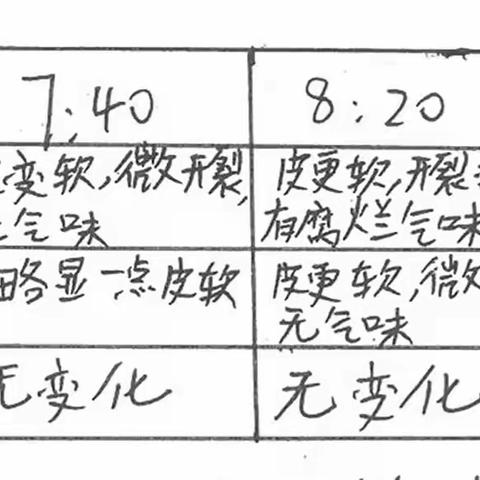 7:40 8:20
变软,微开裂, 皮更软,开裂
气味 有腐烂气味
略显一点皮软 皮更软,微
无气味
无变化 无变化